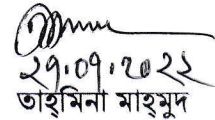 ২৭.০৭.২০২২
তাহ্‌মিনা মাহ্‌মুদ